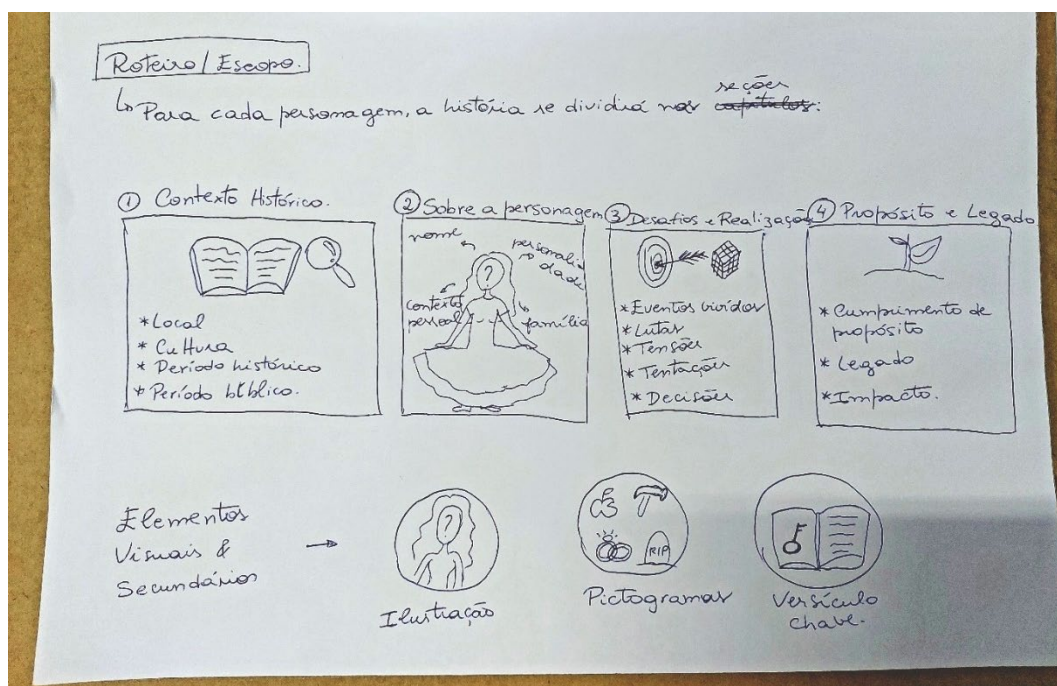 Roteiro/Escopo.
↳ Para cada personagem, a história se dividirá nas capítulos:
seções
① Contexto Histórico.
* Local
* Cultura
* Período histórico
* Período bíblico.
② Sobre a personagem
nome
personali
dade
contexto
pessoal
família
③ Desafios e Realizações
* Eventos vividos
* Lutas
* Tensões
* Tentações
* Decisões
④ Propósito e Legado
* Cumprimento de
propósito
* Legado
* Impacto.
Elementos
Visuais &
Secundários
→
Ilustração
RIP
Pictogramas
Versículo
chave.